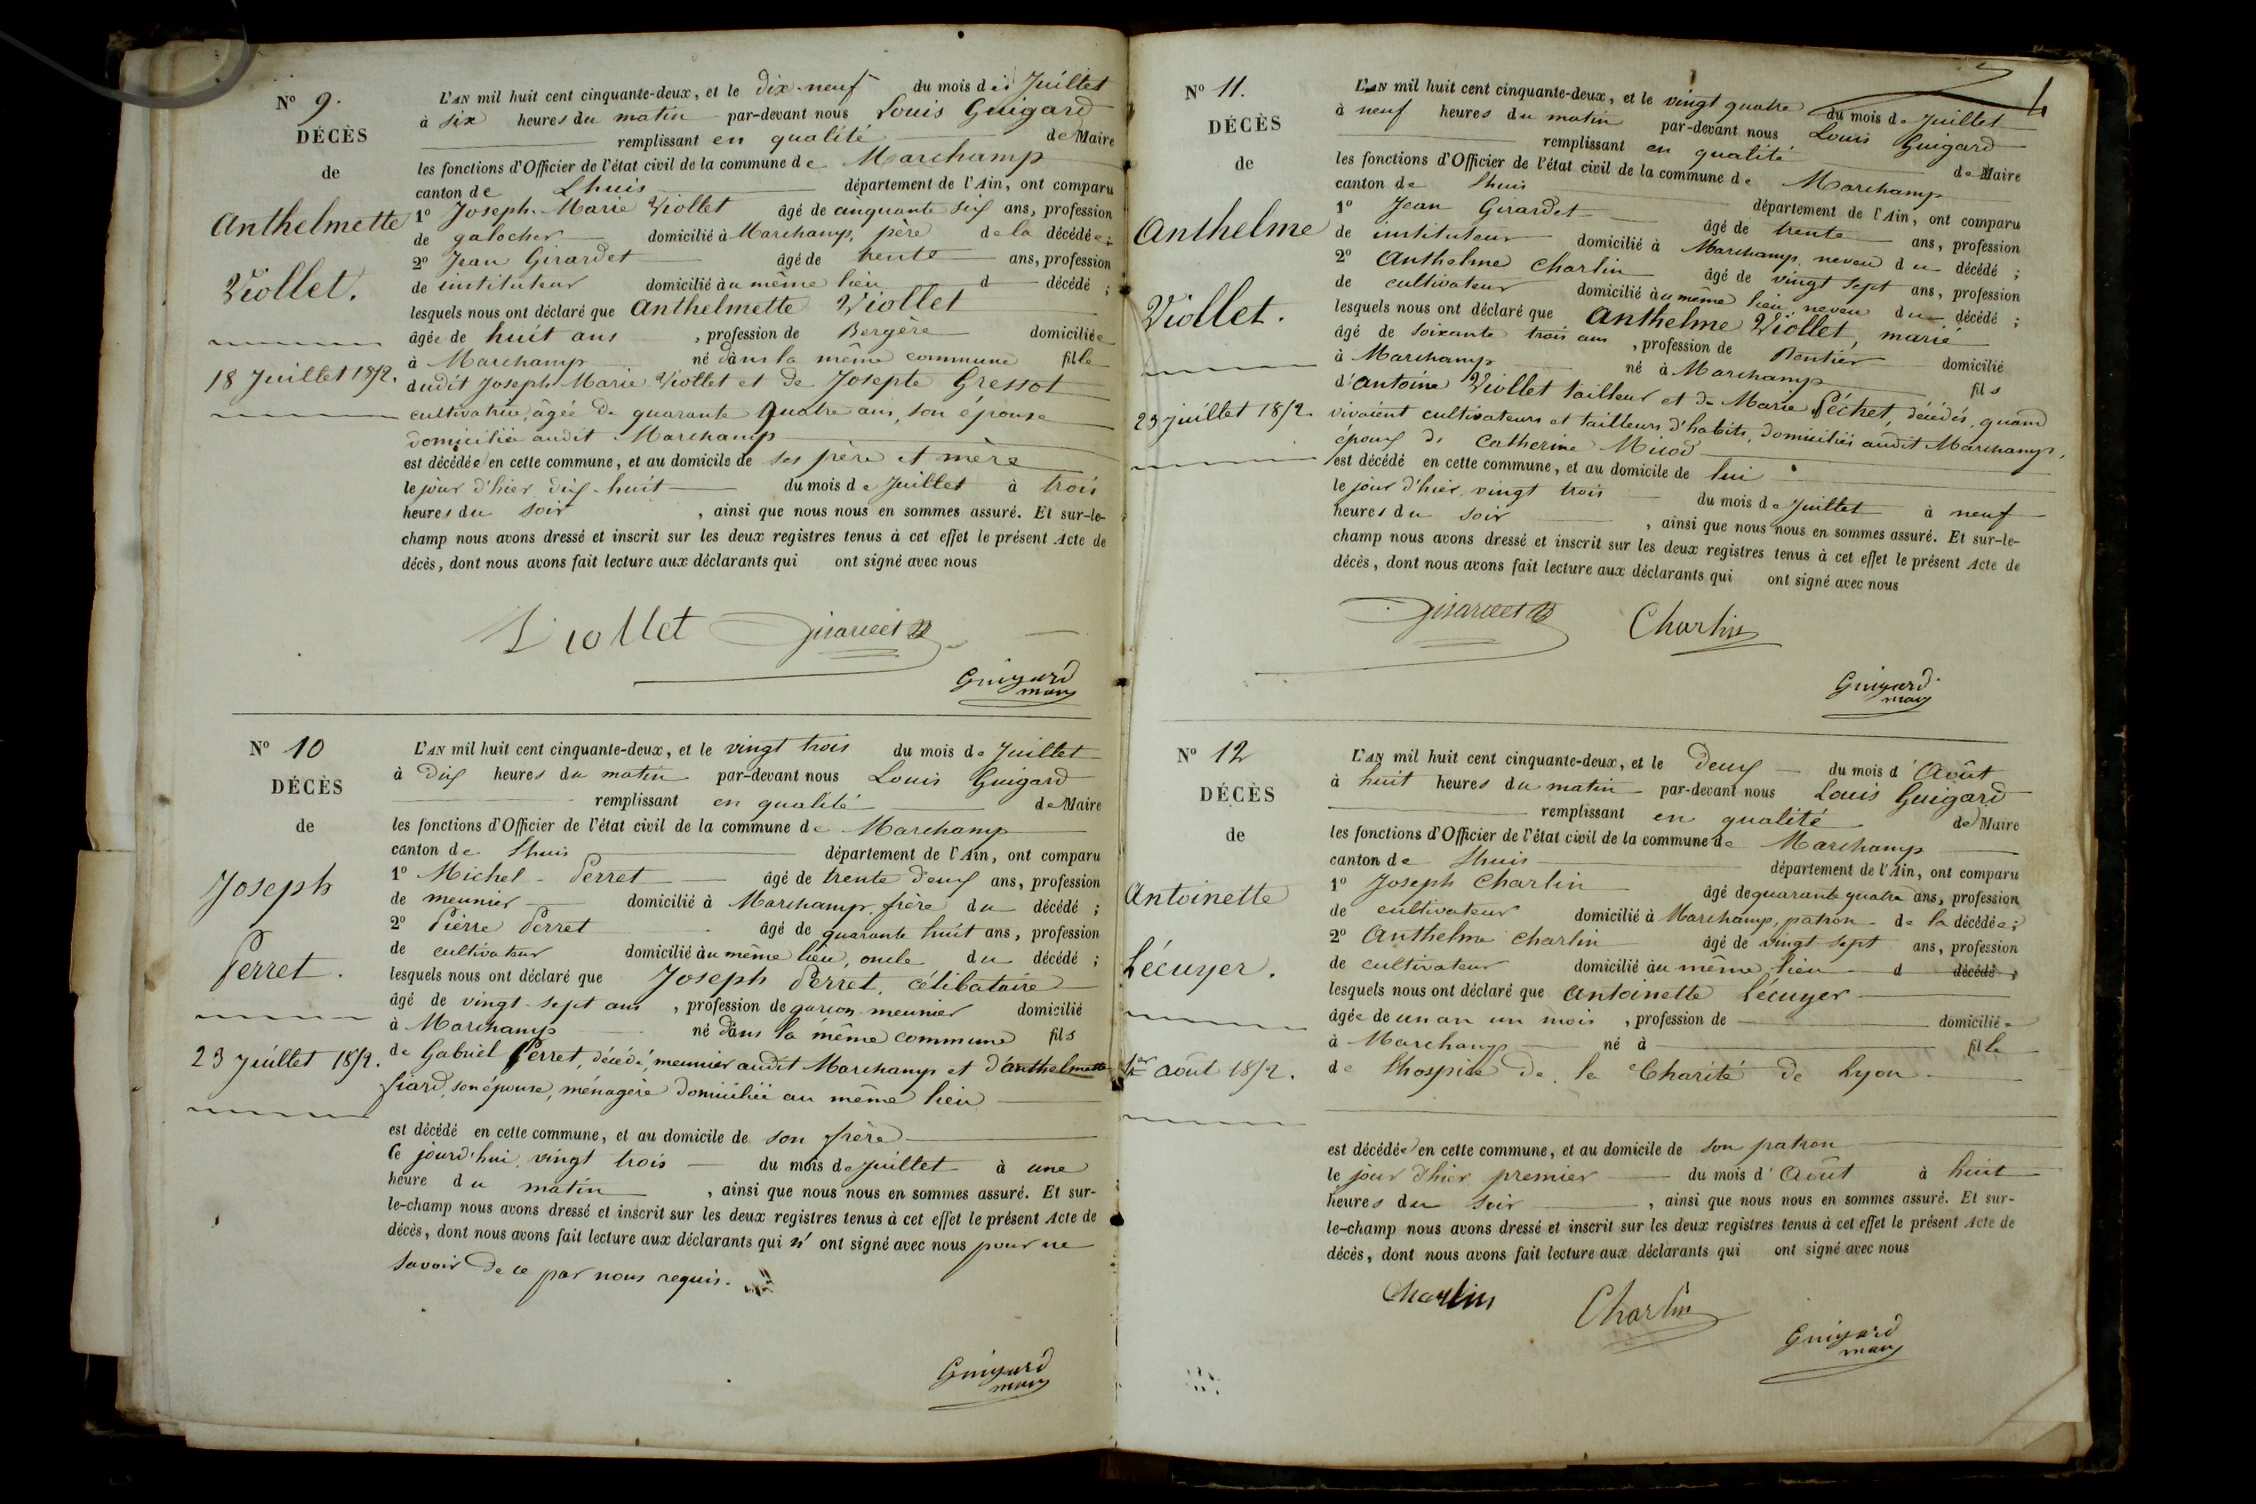 Nº 9.
DÉCÈS
de
Anthelmette
Viollet.
18 Juillet 1852.
L'AN mil huit cent cinquante-deux, et le dix-neuf du mois de Juillet
à six heures du matin par-devant nous Louis Guigard
remplissant en qualité de Maire
les fonctions d'Officier de l'état civil de la commune de Marchamp
canton de Lhuis département de l'Ain, ont comparu
1º Joseph-Marie Viollet âgé de cinquante six ans, profession
de galocher domicilié à Marchamp, père de la décédée;
2º Jean Girardet âgé de trente ans, profession
de instituteur domicilié au même lieu d décédé;
lesquels nous ont déclaré que Anthelmette Viollet
âgée de huit ans, profession de Bergère domiciliée
à Marchamp né dans la même commune fille
dudit Joseph-Marie Viollet et de Josepte Gressot
cultivatrice, âgée de quarante quatre ans, son épouse
domiciliée audit Marchamp
est décédée en cette commune, et au domicile de ses père et mère
le jour d'hier dix-huit du mois de Juillet à trois
heures du soir, ainsi que nous nous en sommes assuré. Et sur-le-
champ nous avons dressé et inscrit sur les deux registres tenus à cet effet le présent Acte de
décès, dont nous avons fait lecture aux déclarants qui ont signé avec nous
Viollet Girardet
Guigard
maire
Nº 10
DÉCÈS
de
Joseph
Perret.
23 Juillet 1852.
L'AN mil huit cent cinquante-deux, et le vingt trois du mois de Juillet
à dix heures du matin par-devant nous Louis Guigard
remplissant en qualité de Maire
les fonctions d'Officier de l'état civil de la commune de Marchamp
canton de Lhuis département de l'Ain, ont comparu
1º Michel Perret âgé de trente deux ans, profession
de meunier domicilié à Marchamp, frère du décédé;
2º Pierre Perret âgé de quarante huit ans, profession
de cultivateur domicilié au même lieu, oncle du décédé;
lesquels nous ont déclaré que Joseph Perret, célibataire
âgé de vingt-sept ans, profession de garçon meunier domicilié
à Marchamp né dans la même commune fils
de Gabriel Perret, décédé, meunier audit Marchamp et d'anthelmette
Siard, son épouse, ménagère domiciliée au même lieu
est décédé en cette commune, et au domicile de son frère
Ce jourd'hui, vingt trois du mois de Juillet à une
heure du matin, ainsi que nous nous en sommes assuré. Et sur-
le-champ nous avons dressé et inscrit sur les deux registres tenus à cet effet le présent Acte de
décès, dont nous avons fait lecture aux déclarants qui n'ont signé avec nous pour ne
savoir de ce par nous requis.
Guigard
maire
Nº 11.
DÉCÈS
de
Anthelme
Viollet.
23 juillet 1852.
L'AN mil huit cent cinquante-deux, et le vingt quatre du mois de Juillet
à neuf heures du matin par-devant nous Louis Guigard
remplissant en qualité de Maire
les fonctions d'Officier de l'état civil de la commune de Marchamp
canton de Lhuis département de l'Ain, ont comparu
1º Jean Girardet âgé de trente ans, profession
de instituteur domicilié à Marchamp, neveu du décédé;
2º Anthelme Charlin âgé de vingt sept ans, profession
de cultivateur domicilié au même lieu, neveu du décédé;
lesquels nous ont déclaré que Anthelme Viollet, marié
âgé de soixante trois ans, profession de Rentier domicilié
à Marchamp né à Marchamp fils
d'Antoine Viollet tailleur et de Marie Péchet, décédés, quand
vivaient cultivateurs et tailleurs d'habits, domiciliés audit Marchamp,
époux de Catherine Micod
est décédé en cette commune, et au domicile de lui
le jour d'hier, vingt trois du mois de Juillet à neuf
heures du soir, ainsi que nous nous en sommes assuré. Et sur-le-
champ nous avons dressé et inscrit sur les deux registres tenus à cet effet le présent Acte de
décès, dont nous avons fait lecture aux déclarants qui ont signé avec nous
Girardet Charlin
Guigard
maire
Nº 12
DÉCÈS
de
Antoinette
Lécuyer.
1er août 1852.
L'AN mil huit cent cinquante-deux, et le Deux du mois d'Août
à huit heures du matin par-devant nous Louis Guigard
remplissant en qualité de Maire
les fonctions d'Officier de l'état civil de la commune de Marchamp
canton de Lhuis département de l'Ain, ont comparu
1º Joseph Charlin âgé de quarante quatre ans, profession
de cultivateur domicilié à Marchamp, patron de la décédée;
2º Anthelme Charlin âgé de vingt sept ans, profession
de cultivateur domicilié au même lieu d décédé;
lesquels nous ont déclaré que Antoinette Lécuyer
âgée de un an un mois, profession de domiciliée
à Marchamp né à fille
de l'hospice de la Charité de Lyon
est décédée en cette commune, et au domicile de son patron
le jour d'hier premier du mois d'Août à huit
heures du soir, ainsi que nous nous en sommes assuré. Et sur-
le-champ nous avons dressé et inscrit sur les deux registres tenus à cet effet le présent Acte de
décès, dont nous avons fait lecture aux déclarants qui ont signé avec nous
Charlin Charlin
Guigard
maire